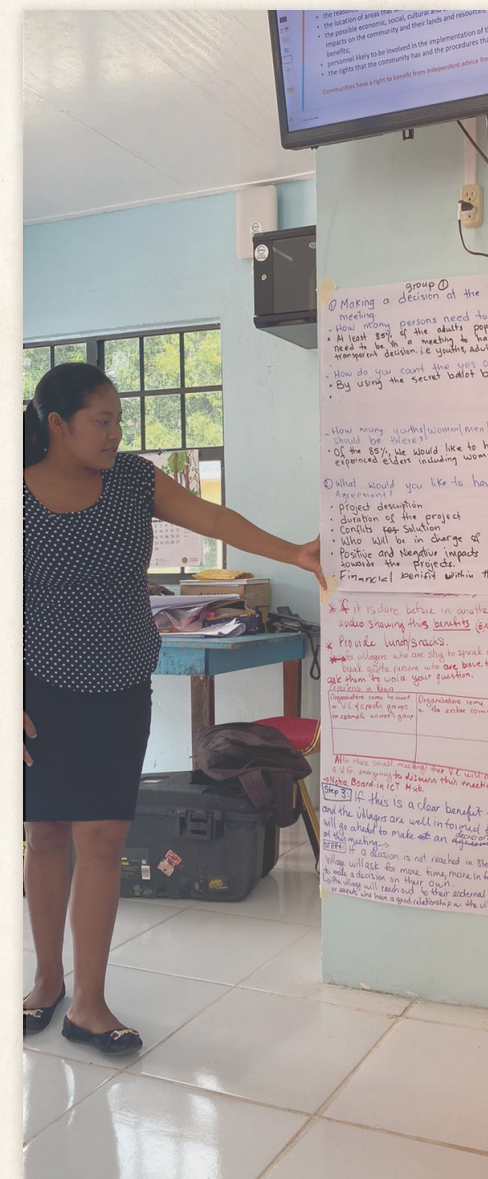 the location of areas that
the possible economic, social, cultural and
impacts on the community and their lands and resources
benefits;
personnel likely to be involved in the implementation of
the rights that the community has and the procedures tha
Communities have a right to benefit from independent advice fro
group ①
① Making a decision at the
meeting.
- How many persons need to
• At least 85% of the adults pop
need to be in a meeting to ha
transparent decision. i.e youths, adul
- How do you count the yes o
• By using the secret ballot b
- How many youths/women/men
should be there?
• Of the 85%, We would like to h
experinced elders including wom
② What would you like to hav
Agreement?
• project description
• duration of the project
• Conflits Solution
• Who will be in charge of
• Positive and Negative impacts
towards the projects.
• Financial benifit within th
* if it is done before in anothe
video showing this benefits
* Provide lunch/snacks.
for villagers who are shy to speak
break guide persons who are brave t
ask them to voice your question.
Organizations come to meet
w V.C & specific groups
for example women's group
Organizations come
the entire com
After these small meetings the V.C will
to discuss this meeti
→ Note Board in ICT Hub.
Step 3: If this is a clear benefit
and the villagers are well informed
will go ahead to make an
at this meeting.
If a decision is not reached in Ste
Village will ask for more time, more info
to make a decision on their own.
the village will reach out to their external
who have a good relationship w the vil